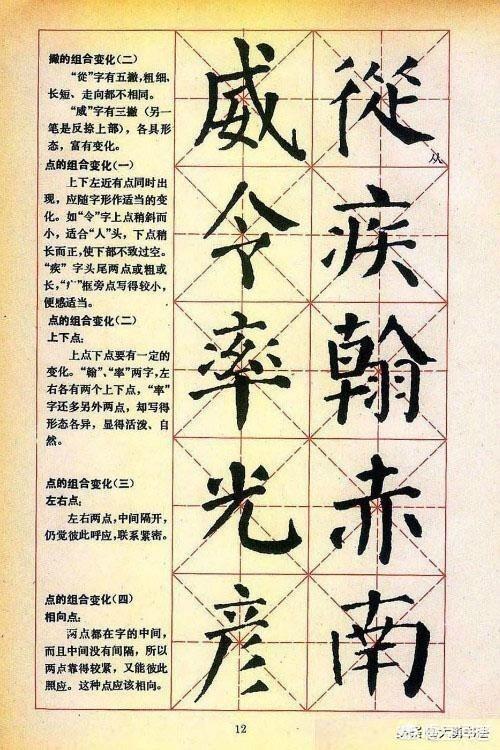 撇的组合变化(二)
“從”字有五撇,粗细、
长短、走向都不相同。
“威”字有三撇(另一
笔是反捺上部),各具形
态,富有变化。
点的组合变化(一)
上下左近有点同时出
现,应随字形作适当的变
化。如“令”字上点稍斜而
小,适合“人”头,下点稍
长而正,使下部不致过空。
“疾”字头尾两点或粗或
长,“疒”框旁点写得较小,
便感适当。
点的组合变化(二)
上下点:
上点下点要有一定的
变化。“翰”、“率”两字,左
右各有两个上下点,“率”
字还多另外两点,却写得
形态各异,显得活泼、自
然。
点的组合变化(三)
左右点:
左右两点,中间隔开,
仍觉彼此呼应,联系紧密。
点的组合变化(四)
相向点:
两点都在字的中间,
而且中间没有间隔,所以
两点靠得较紧,又能彼此
照应。这种点应该相向。
威 從
从
令 疾
率 翰
光 赤
彦 南
12